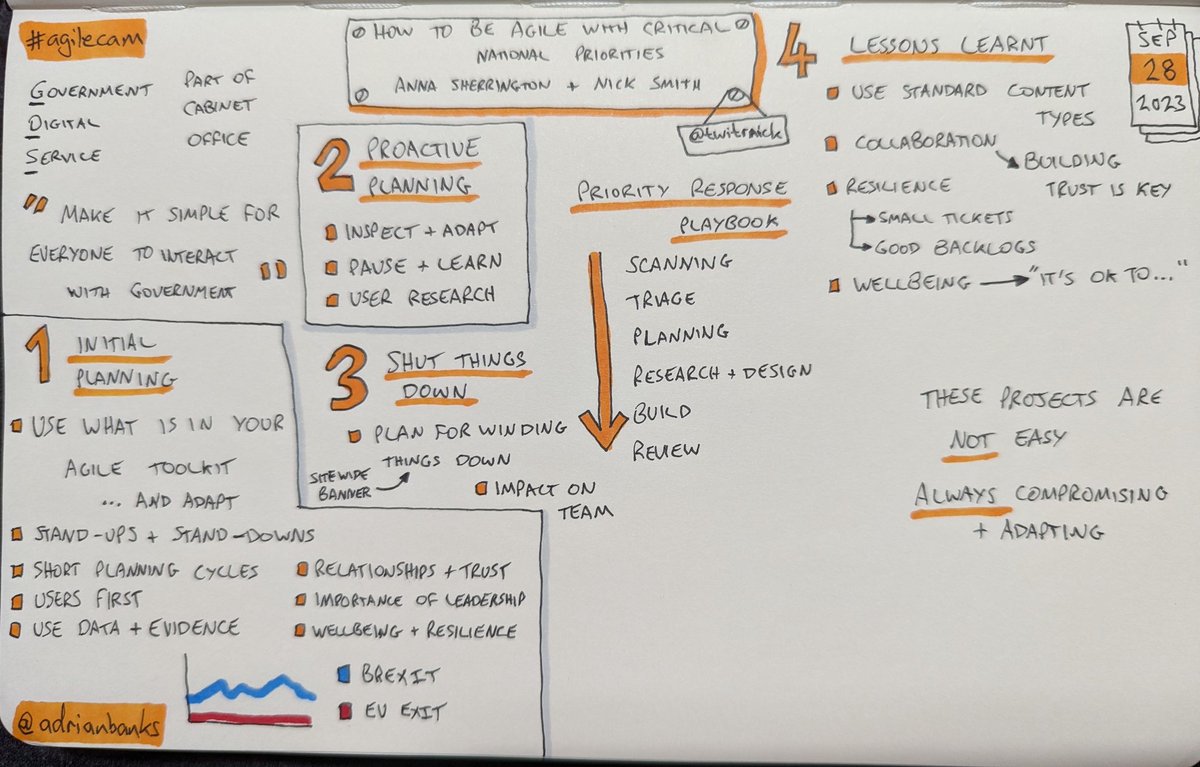 #agilecam
GOVERNMENT
DIGITAL
SERVICE
PART OF
CABINET
OFFICE
" MAKE IT SIMPLE FOR
EVERYONE TO INTERACT
WITH GOVERNMENT "
HOW TO BE AGILE WITH CRITICAL
NATIONAL PRIORITIES
ANNA SHERRINGTON + NICK SMITH
@twitrnick
SEP
28
2023
1 INITIAL
PLANNING
USE WHAT IS IN YOUR
AGILE TOOLKIT
... AND ADAPT
STAND-UPS + STAND-DOWNS
SHORT PLANNING CYCLES
USERS FIRST
USE DATA + EVIDENCE
RELATIONSHIPS + TRUST
IMPORTANCE OF LEADERSHIP
WELLBEING + RESILIENCE
BREXIT
EU EXIT
2 PROACTIVE
PLANNING
INSPECT + ADAPT
PAUSE + LEARN
USER RESEARCH
3 SHUT THINGS
DOWN
PLAN FOR WINDING
THINGS DOWN
SITEWIDE
BANNER
IMPACT ON
TEAM
PRIORITY RESPONSE
PLAYBOOK
SCANNING
TRIAGE
PLANNING
RESEARCH + DESIGN
BUILD
REVIEW
4 LESSONS LEARNT
USE STANDARD CONTENT
TYPES
COLLABORATION
BUILDING
TRUST IS KEY
RESILIENCE
SMALL TICKETS
GOOD BACKLOGS
WELLBEING → "IT'S OK TO..."
THESE PROJECTS ARE
NOT EASY
ALWAYS COMPROMISING
+ ADAPTING
@adrianbanks